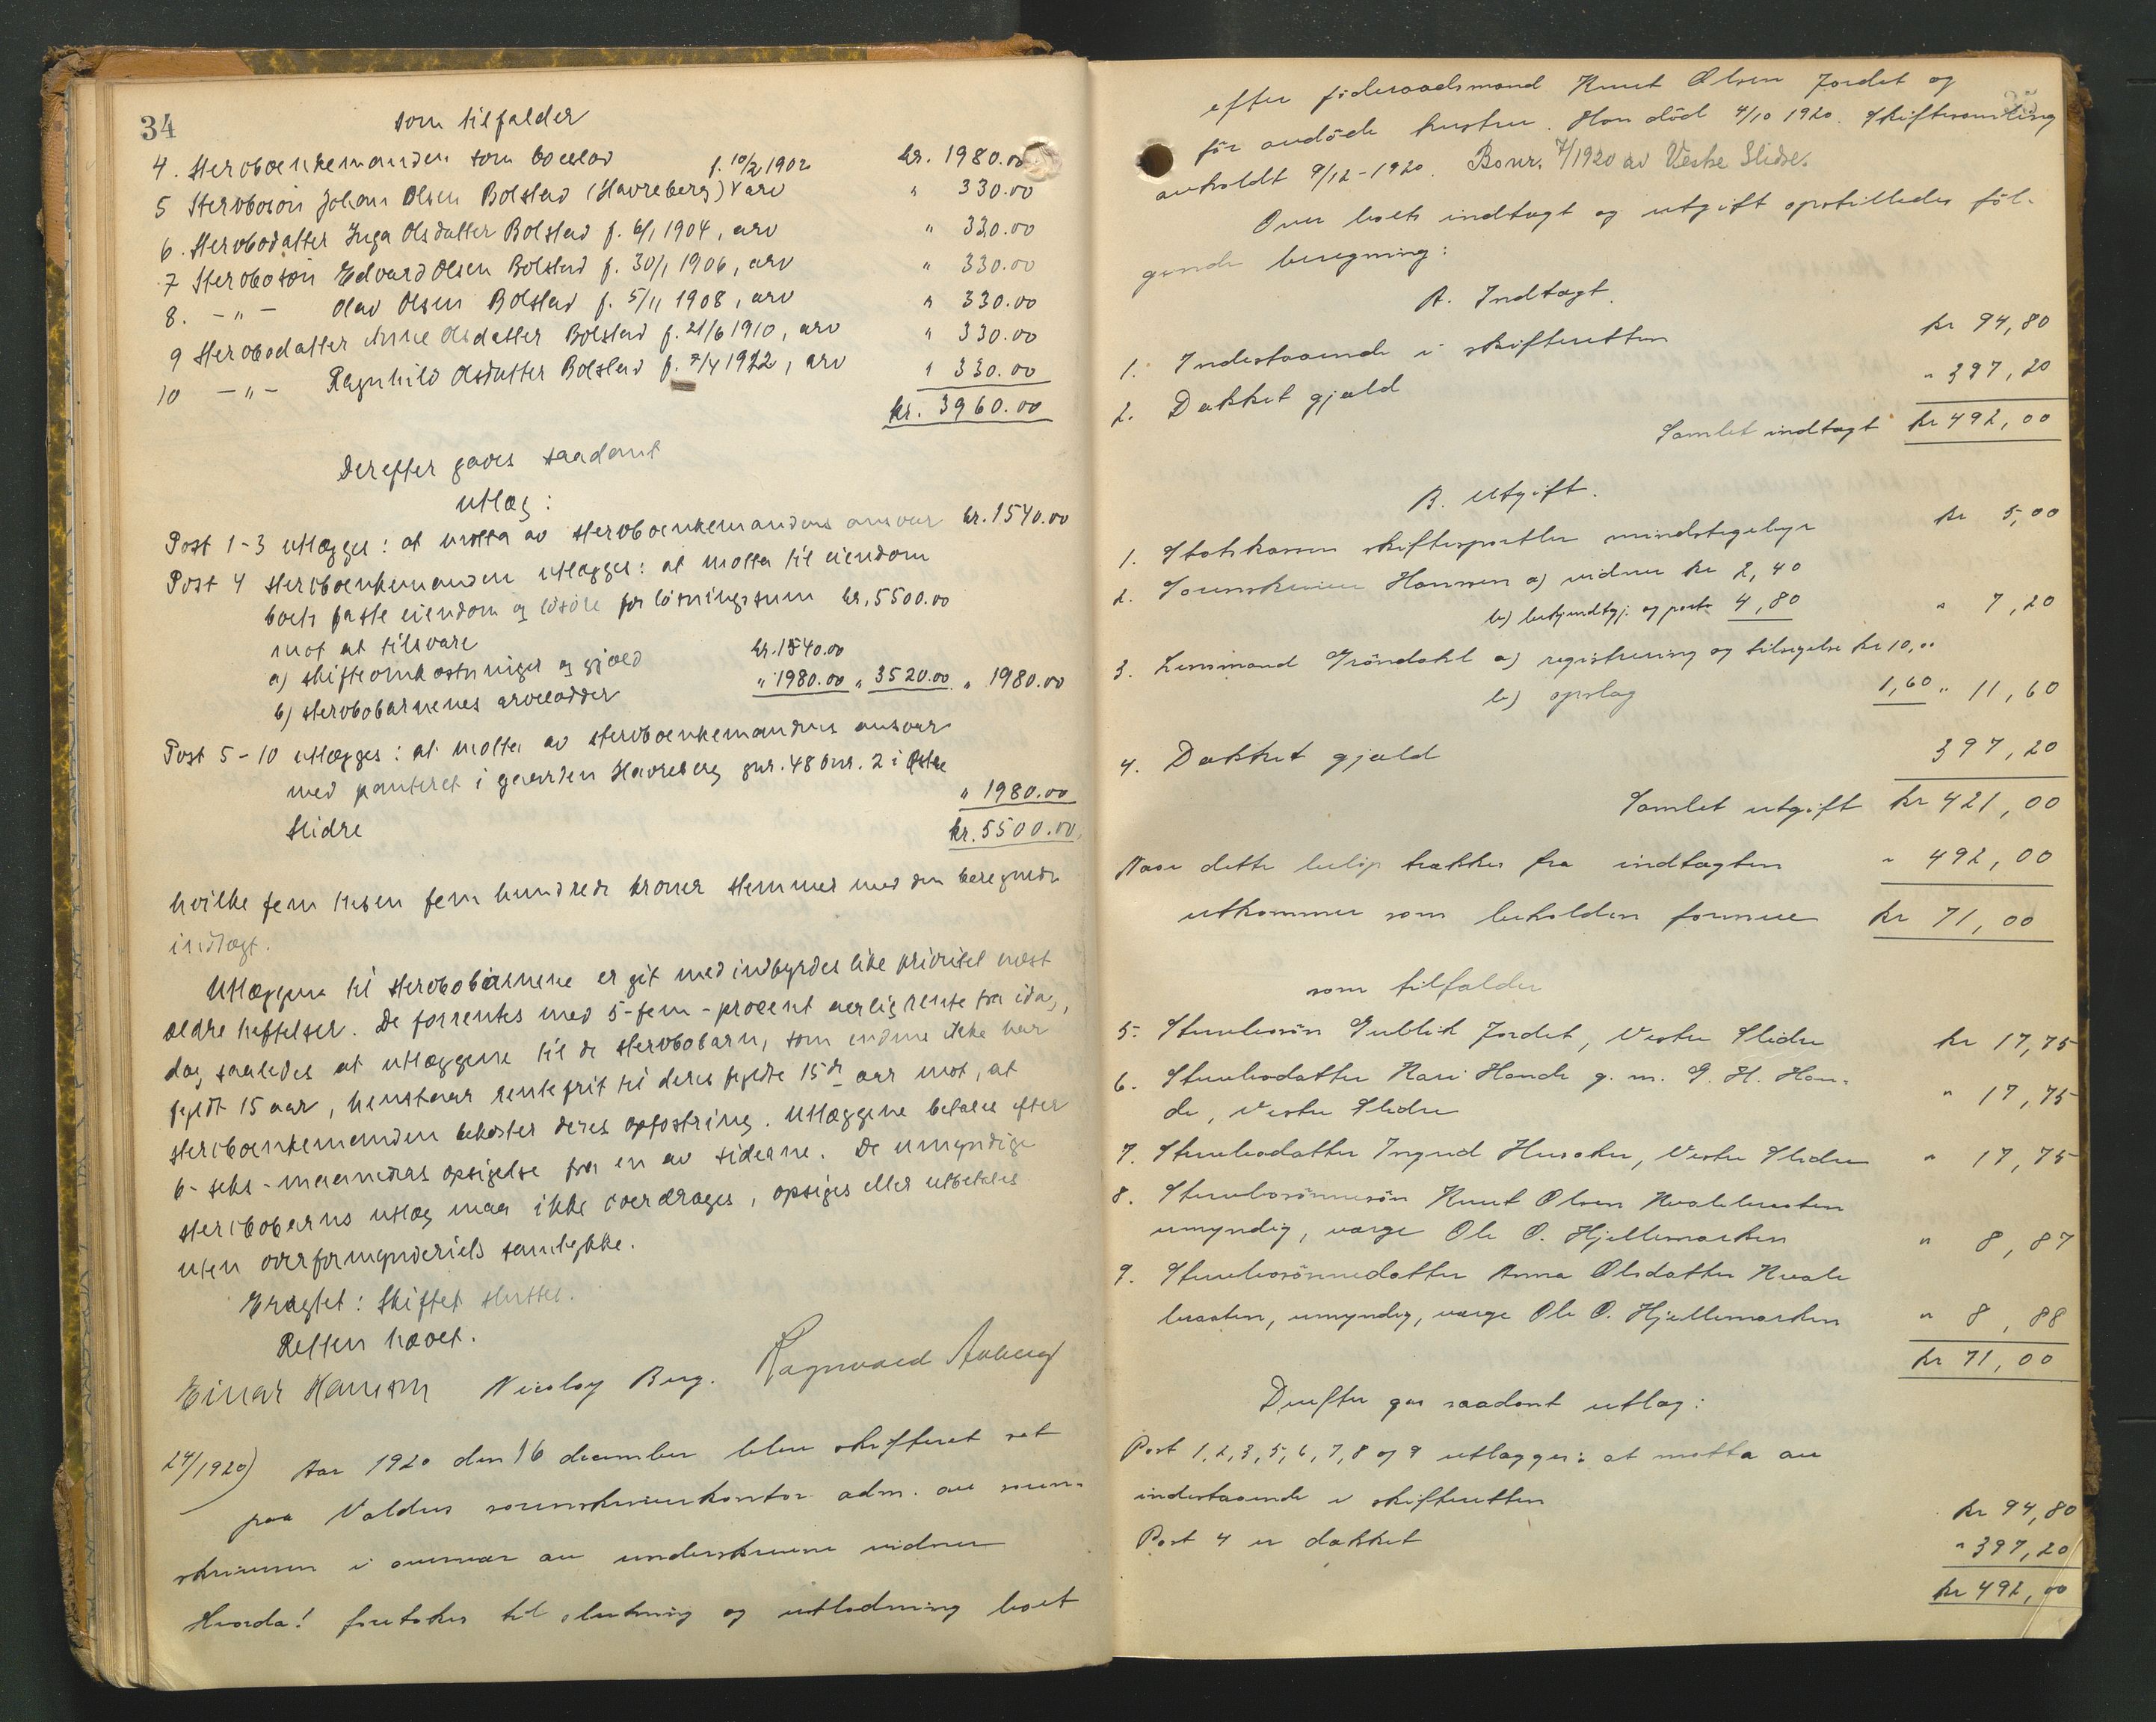 34
som tilfalder
4. Stervboenkemanden som boeslod kr. 1980.00
5 Stervbosøn Johan Olsen Bolstad (Havreberg) f. 10/2 1902 arv " 330.00
6. Stervbodatter Inga Olsdatter Bolstad f. 6/1 1904, arv " 330.00
7 Stervbosøn Edvard Olsen Bolstad f. 30/1 1906, arv " 330.00
8. - " - Olav Olsen Bolstad f. 5/11 1908, arv " 330.00
9 Stervbodatter Anne Olsdatter Bolstad f. 21/6 1910, arv " 330.00
10 - " - Ragnhild Olsdatter Bolstad f. 7/4 1922, arv " 330.00
kr. 3960.00
Derefter gaves saadant
utlæg:
Post 1-3 utlægges: at motta av stervboenkemandens ansvar kr. 1540.00
Post 4 stervboenkemanden utlægges: at motta til eiendom
boets faste eiendom og løsøre for løsningssum kr. 5500.00
mot at tilsvare
a) skifteomkostninger og gjæld kr. 1540.00
b) stervbobarnenes arvelodder " 1980.00 " 3520.00 " 1980.00
Post 5-10 utlægges: at motta av stervboenkemandens ansvar
med panteret i gaarden Havreberg gnr. 48 bnr. 2 i Østre
Slidre " 1980.00
kr. 5500.00
hvilke fem tusen fem hundrede kroner stemmer med den beregnede
indtægt.
Utlæggene til stervbobarnene er git med indbyrdes like prioritet næst
ældre heftelser. De forrentes med 5-fem-procent aarlig rente fra idag,
dog saaledes at utlæggene til de stervbobarn, som endnu ikke har
fyldt 15 aar, henstaar rentefrit til deres fyldte 15de aar mot, at
stervboenkemanden bekoster deres opfostring. Utlæggene betales efter
6-seks-maaneders opsigelse fra en av siderne. De umyndige
stervbobarns utlæg maa ikke overdrages, opsiges eller utbetales
uten overformynderiets samtykke.
Eragtet: Skiftet sluttet.
Retten hævet.
Einar Hansen Nicolay Berg. Ragnvald Aaberg
24/1920) Aar 1920 den 16 december blev skifteret sat
paa Valdres sorenskriverkontor adm. av soren-
skriveren i overvær av underskrevne vidner
Hvorda! foretokes til slutning og utlodning boet
35
efter føderaadsmand Knut Olsen Jordet og
før avdøde hustru. Han død 4/10 1920. Skiftesamling
avholdt 9/12-1920. Bonr. 7/1920 av Vestre Slidre.
Over boets indtægt og utgift opstilledes føl-
gende beregning:
A. Indtægt.
1. Indestaaende i skifteretten kr 94,80
2. Dækket gjæld " 397,20
Samlet indtægt kr 492,00
B. Utgift.
1. Statskassen skiftesportler mindstegebyr kr 5,00
2. Sorenskriver Hansen a) vidner kr 2,40
b) bekjendtgj. og porto 4,80 " 7,20
3. Lensmand Grøndahl a) registrering og tilsigelse kr 10,00
b) opslag 1,60 " 11,60
4. Dækket gjæld 397,20
Samlet utgift kr 421,00
Naar dette beløp trækkes fra indtægten " 492,00
utkommer som beholden formue kr 71,00
som tilfalder
5. Stervbosøn Gudlik Jordet, Vestre Slidre kr 17,75
6. Stervbodatter Kari Hande g. m. G. H. Han-
de, Vestre Slidre " 17,75
7. Stervbodatter Ingrid Husaker, Vestre Slidre " 17,75
8. Stervbosønnesøn Knut Olsen Kvalebraaten
umyndig, værge Ole O. Hjellemarken " 8,87
9. Stervbosønnedatter Anna Olsdatter Kvale
braaten, umyndig, værge Ole O. Hjellemarken " 8,88
kr 71,00
Derefter gas saadant utlæg:
Post 1, 2, 3, 5, 6, 7, 8 og 9 utlægges: at motta av
indestaaende i skifteretten kr 94,80
Post 4 er dækket " 397,20
kr 492,00